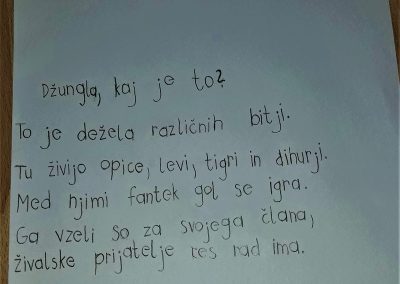 Džungla, kaj je to?
To je dežela različnih bitji.
Tu živijo opice, levi, tigri in dihurji.
Med njimi fantek gol se igra.
Ga vzeli so za svojega člana,
živalske prijatelje res rad ima.